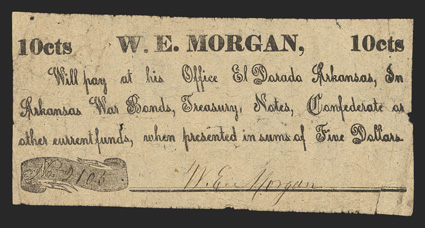 10cts W. E. MORGAN, 10cts
Will pay at his Office El Dorado Arkansas, In
Arkansas War Bonds, Treasury, Notes, Confederate or
other current funds, when presented in sums of Five Dollars.
No. 2105
W. E. Morgan